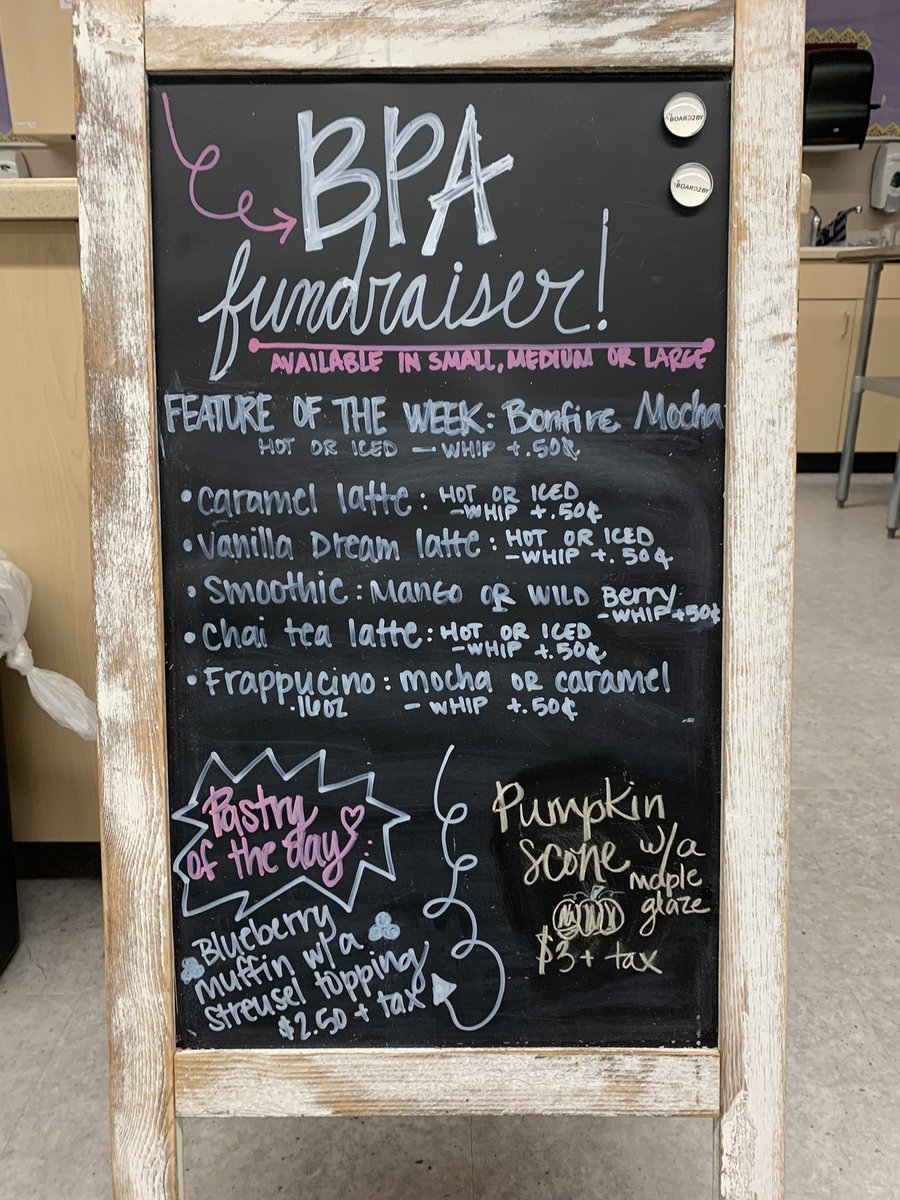 BPA
BOARD2BY
BOARD2BY
fundraiser!
AVAILABLE IN SMALL, MEDIUM OR LARGE
FEATURE OF THE WEEK: Bonfire Mocha
HOT OR ICED - WHIP +.50¢
• Caramel latte: HOT OR ICED
- WHIP +.50¢
• Vanilla Dream latte: HOT OR ICED
- WHIP +.50¢
• Smoothie: MANGO OR WILD Berry
- WHIP +50¢
• Chai tea latte: HOT OR ICED
- WHIP +.50¢
• Frappucino: mocha OR caramel
.16oz - WHIP +.50¢
Pastry
of the day
Blueberry
muffin w/a
streusel topping
$2.50 + tax
Pumpkin
Scone w/a
maple
glaze
$3 + tax